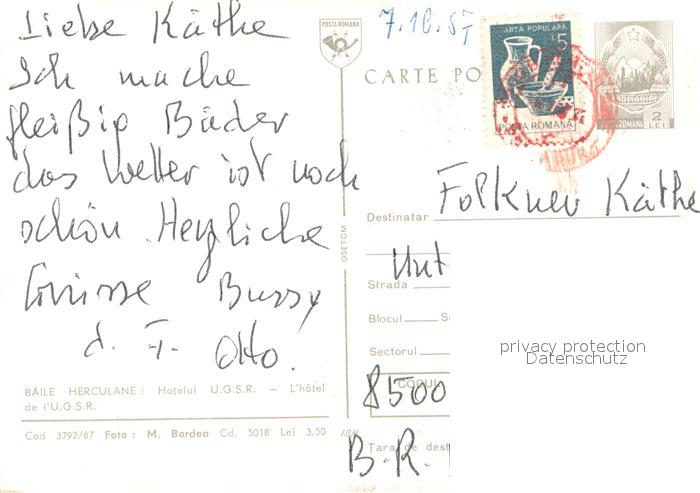 Liebe Käthe
Ich mache
fleißig Bäder
das Wetter ist noch
schön. Herzliche
Grüsse Bussy
d. F. Otto.
BĂILE HERCULANE: Hotelul U.G.S.R. — L'hôtel
de l'U.G.S.R.
Cod 3792/87 Foto: M. Bordea Cd. 5018 Lei 3,50
OSETOM
POSTA ROMANA
7.10.87
CARTE PO
ARTA POPULARA
L5
POSTA ROMANA
ROMANIA
POSTA ROMANA 2 LEI
Destinatar Folkner Käthe
Strada Unt
Blocul
Sectorul
CODUL
8500
Țara de dest
B.R.
privacy protection
Datenschutz